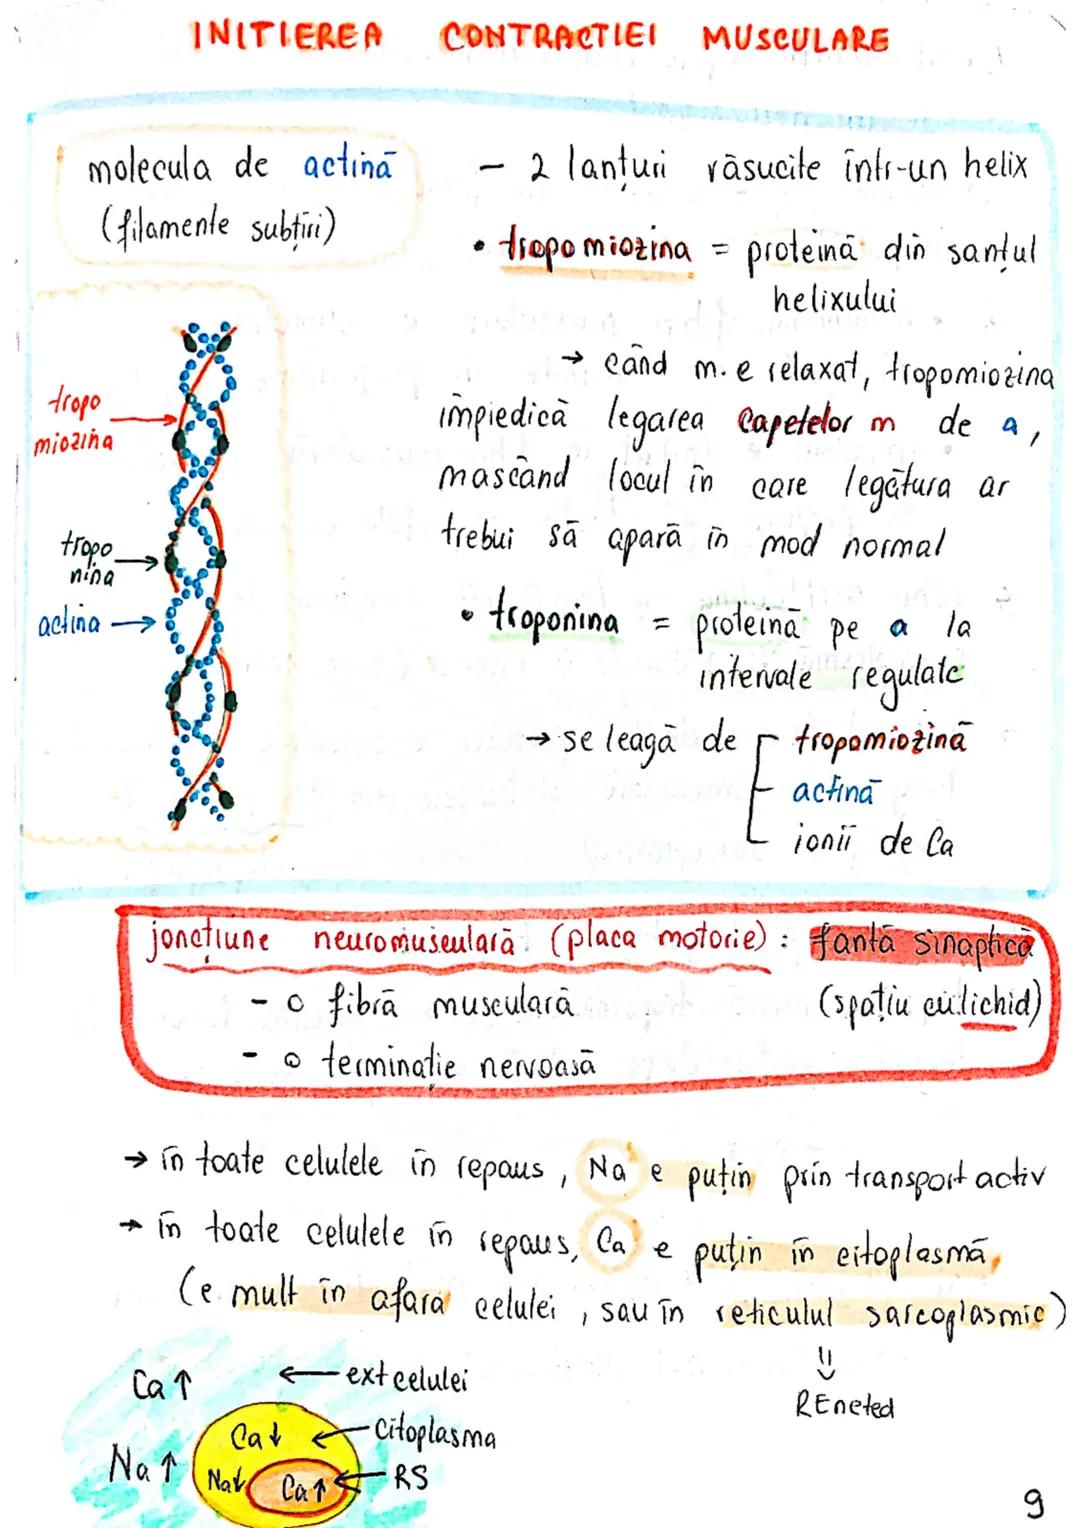 INITIEREA CONTRACTIEI MUSCULARE
molecula de actină
(filamente subțiri)
- 2 lanțuri răsucite într-un helix
• tropomiozina = proteină din șanțul
helixului
→ când m. e relaxat, tropomiozina
împiedică legarea capetelor m de a,
mascând locul în care legătura ar
trebui să apară în mod normal
tropo
miozina
tropo
nina
actina
• troponina = proteină pe a la
intervale regulate
→ se leagă de tropomiozină
actină
ionii de Ca
joncțiune neuromusculară (placa motorie): fantă sinaptică
- o fibră musculară (spațiu cu lichid)
- o terminație nervoasă
→ în toate celulele în repaus, Na e puțin prin transport activ
→ în toate celulele în repaus, Ca e puțin în citoplasmă,
(e mult în afara celulei, sau în reticulul sarcoplasmic)
REneted
Ca↑ ← ext celulei
Ca↓ ← citoplasma
Na↑ Na↓ Ca↑ ← RS
9